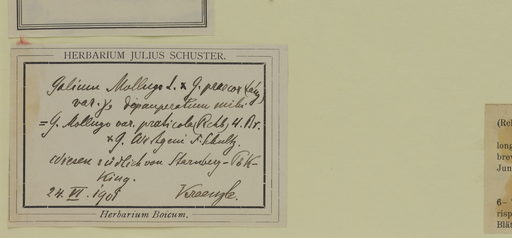 HERBARIUM JULIUS SCHUSTER.
Galium Mollugo L. × G. praecox (Lang)
var. depauperatum mihi
= G. Mollugo var. praticola (Rchb.) H. Br.
× G. Wirtgeni F. Schultz.
Wiesen südlich von Starnberg - Pök-
king.
24. VI. 1901 Kraenzle.
Herbarium Boicum.
(Rel
long
brev
Jun
6-
risp
Blät